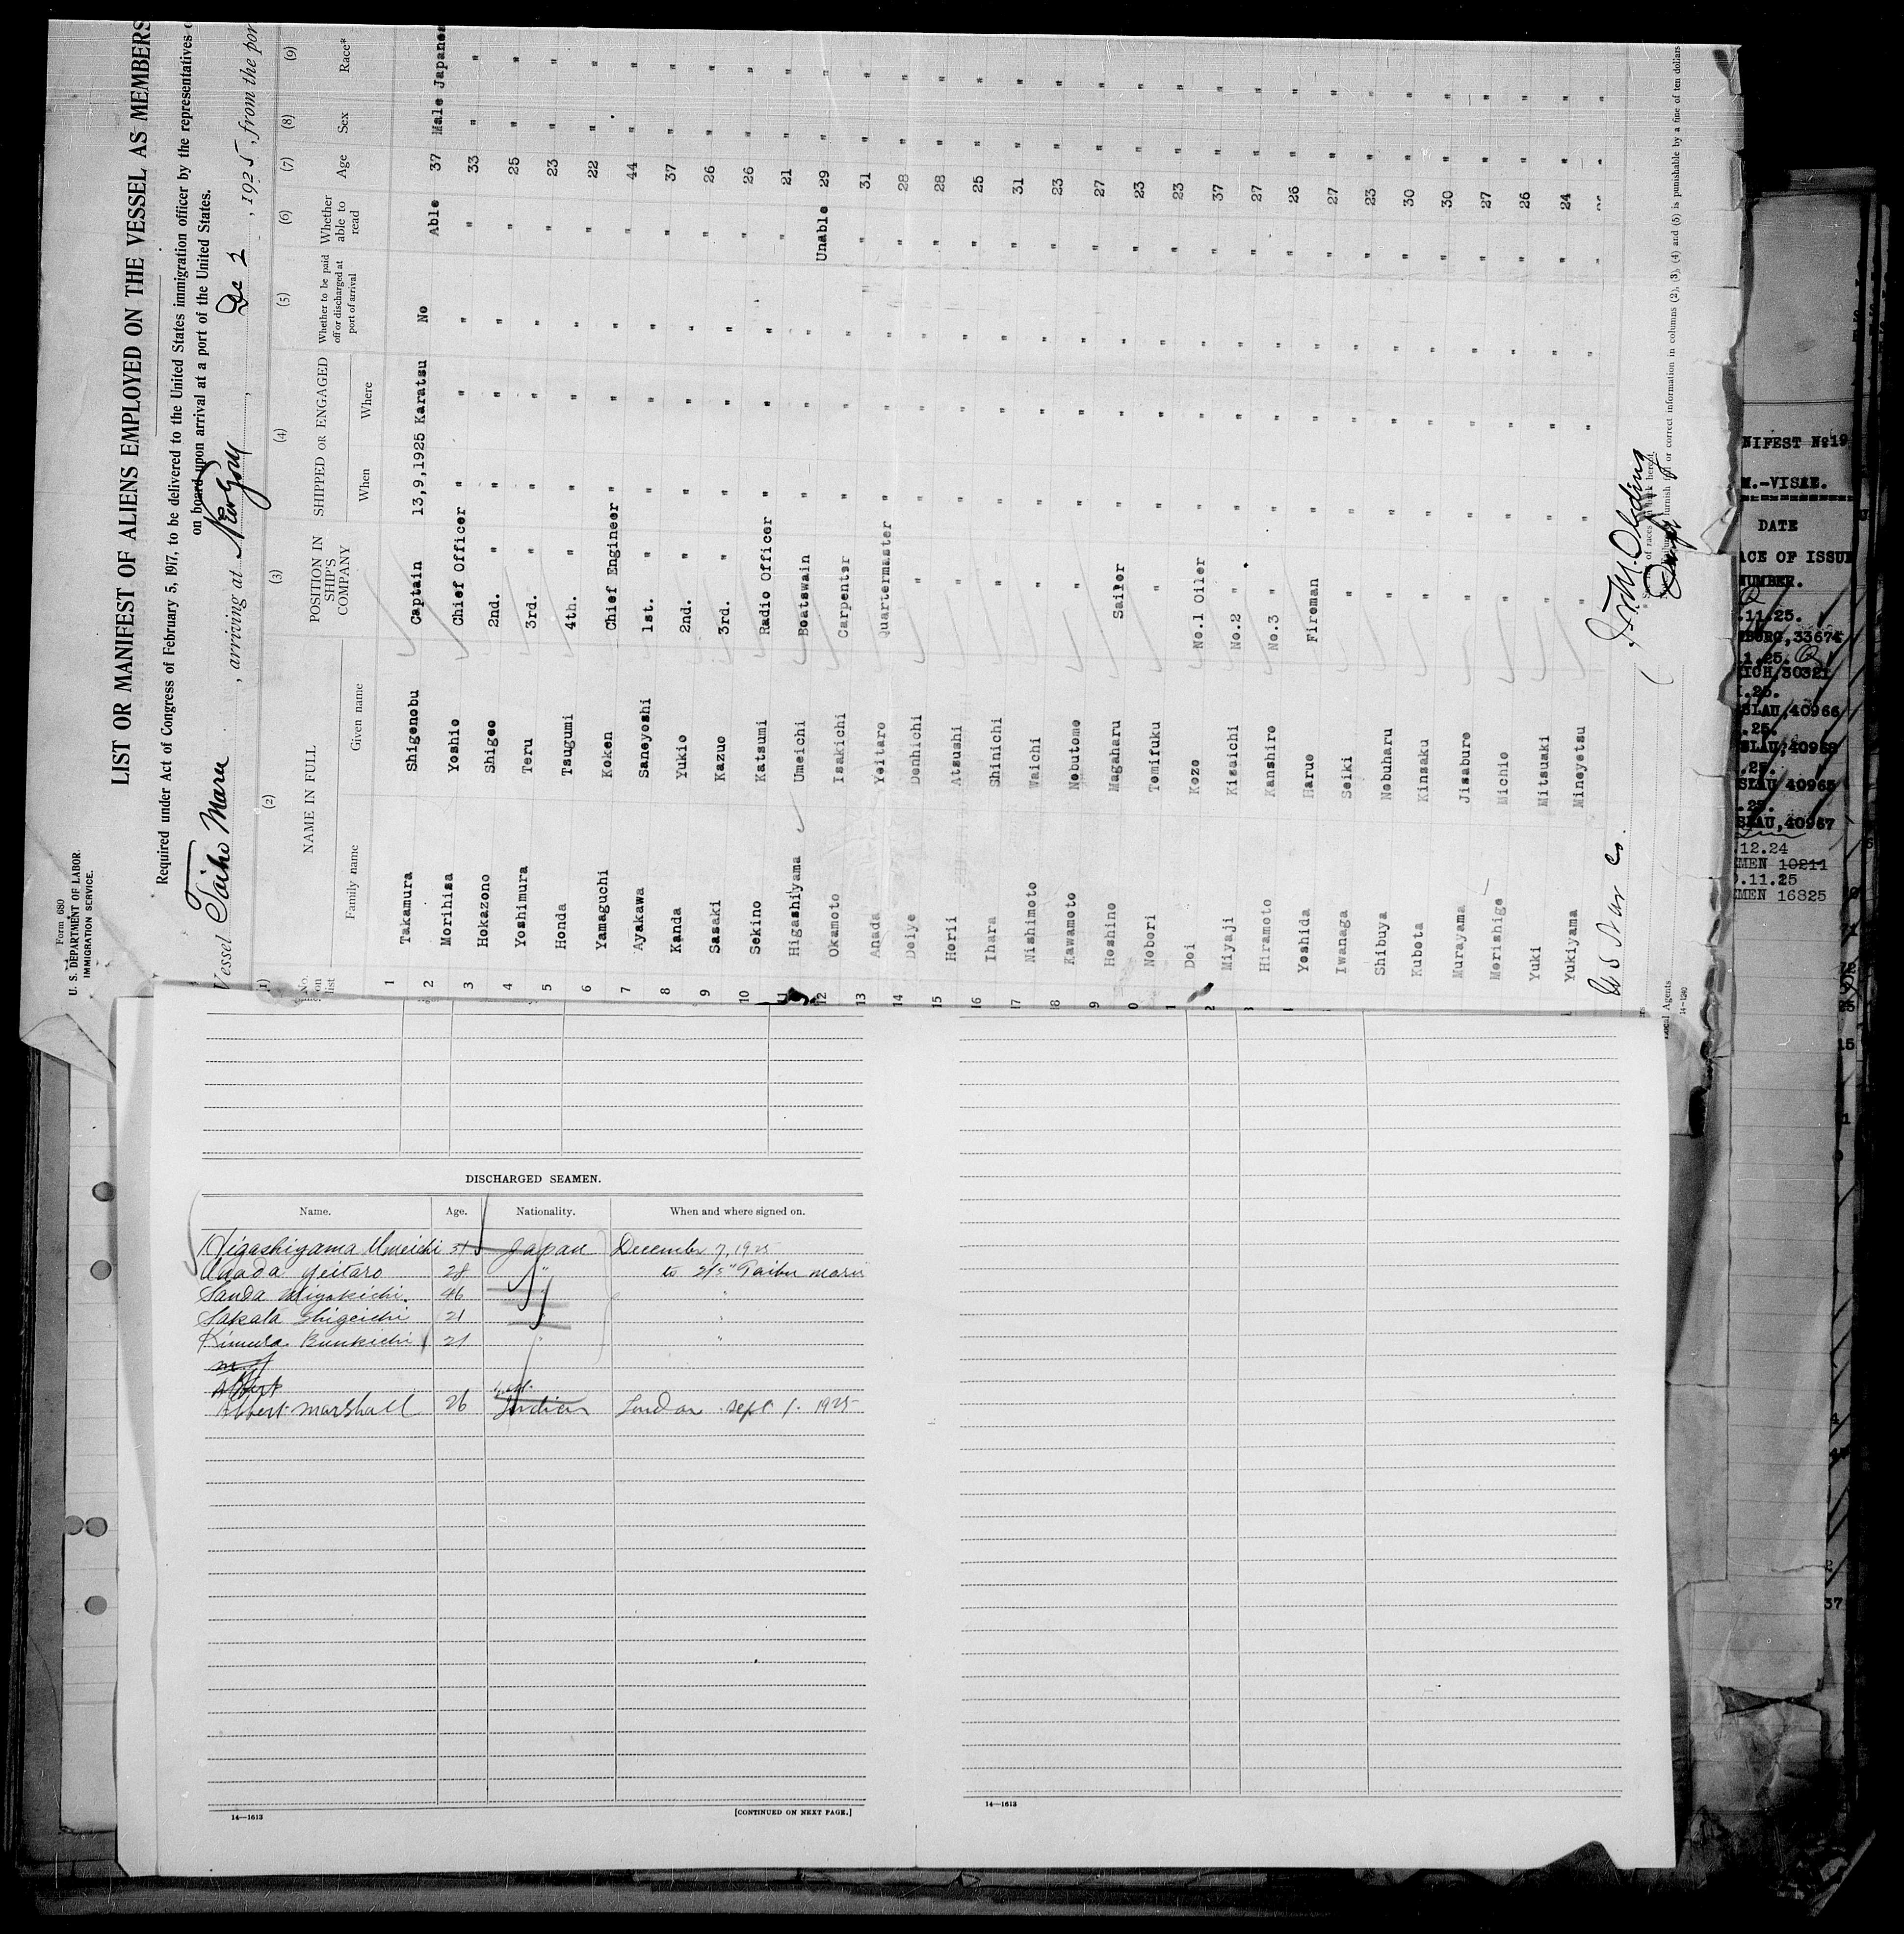 Form 680
U. S. DEPARTMENT OF LABOR
IMMIGRATION SERVICE.
LIST OR MANIFEST OF ALIENS EMPLOYED ON THE VESSEL AS MEMBERS
Required under Act of Congress of February 5, 1917, to be delivered to the United States immigration officer by the representatives
on board upon arrival at a port of the United States.
Vessel Taiho Maru, arriving at New York, Dec 2, 1925, from the por
(1) (2) (3) (4) (5) (6) (7) (8) (9)
No. on list NAME IN FULL POSITION IN SHIP'S COMPANY SHIPPED OR ENGAGED Whether to be paid off or discharged at port of arrival Whether able to read Age Sex Race*
Family name Given name When Where
1 Takamura Shigenobu Captain 13,9,1925 Karatsu No Able 37 Male Japanes
2 Morihisa Yoshio Chief Officer " " " " 33 " "
3 Hokazono Shigeo 2nd. " " " " " 25 " "
4 Yoshimura Teru 3rd. " " " " " 23 " "
5 Honda Tsugumi 4th. " " " " " 22 " "
6 Yamaguchi Koken Chief Engineer " " " " 44 " "
7 Ayakawa Saneyoshi 1st. " " " " " 37 " "
8 Kanda Yukio 2nd. " " " " " 26 " "
9 Sasaki Kazuo 3rd. " " " " " 26 " "
10 Sekino Katsumi Radio Officer " " " " 21 " "
11 Higashiyama Umeichi Boatswain " " " Unable 29 " "
12 Okamoto Isakichi Carpenter " " " " 31 " "
13 Anada Yeitaro Quartermaster " " " " 28 " "
14 Doiye Denhichi " " " " " 28 " "
15 Horii Atsushi " " " " " 25 " "
16 Ihara Shinichi " " " " " 31 " "
17 Nishimoto Waichi " " " " " 23 " "
18 Kawamoto Nobutomo " " " " " 27 " "
9 Hoshino Magaharu Sailor " " " " 23 " "
0 Nobori Tomifuku " " " " " 23 " "
1 Doi Kozo No.1 Oiler " " " " 37 " "
2 Miyaji Kisaichi No.2 " " " " " 27 " "
Hiramoto Kanshiro No.3 " " " " " 26 " "
Yoshida Haruo Fireman " " " " 27 " "
Iwanaga Seiki " " " " " 23 " "
Shibuya Nobuharu " " " " " 30 " "
Kubota Kinsaku " " " " " 30 " "
Murayama Jisaburo " " " " " 27 " "
Morishige Michio " " " " " 26 " "
Yuki Mitsuaki " " " " " 24 " "
Yukiyama Mineyetsu " " " " " " "
furnish full or correct information in columns (2), (3), (4) and (5) is punishable by a fine of ten dollars
Local Agents
14—1240
DISCHARGED SEAMEN.
Name. Age. Nationality. When and where signed on.
Higashiyama Umeichi 31 Japan December 7, 1925
Anada Yeitaro 28 " to S/S "Taibu maru
Sanda Miyokichi. 46 " "
Sakata Shigeichi 21 " "
Kimura Bunkichi 21 " "
Albert
Albert Marshall 26 Indian London Sept 1. 1925
14—1613
[CONTINUED ON NEXT PAGE.]
14—1613
NIFEST №19
M.-VISAE.
DATE
ACE OF ISSUE
NUMBER.
.11.25.
BURG,33674
1.25.
RICH,30321
.25.
SLAU,40966
.25.
SLAU,40968
.25.
SLAU 40965
.25.
SLAU,40967
.12.24
EMEN 10211
.11.25
EMEN 16825